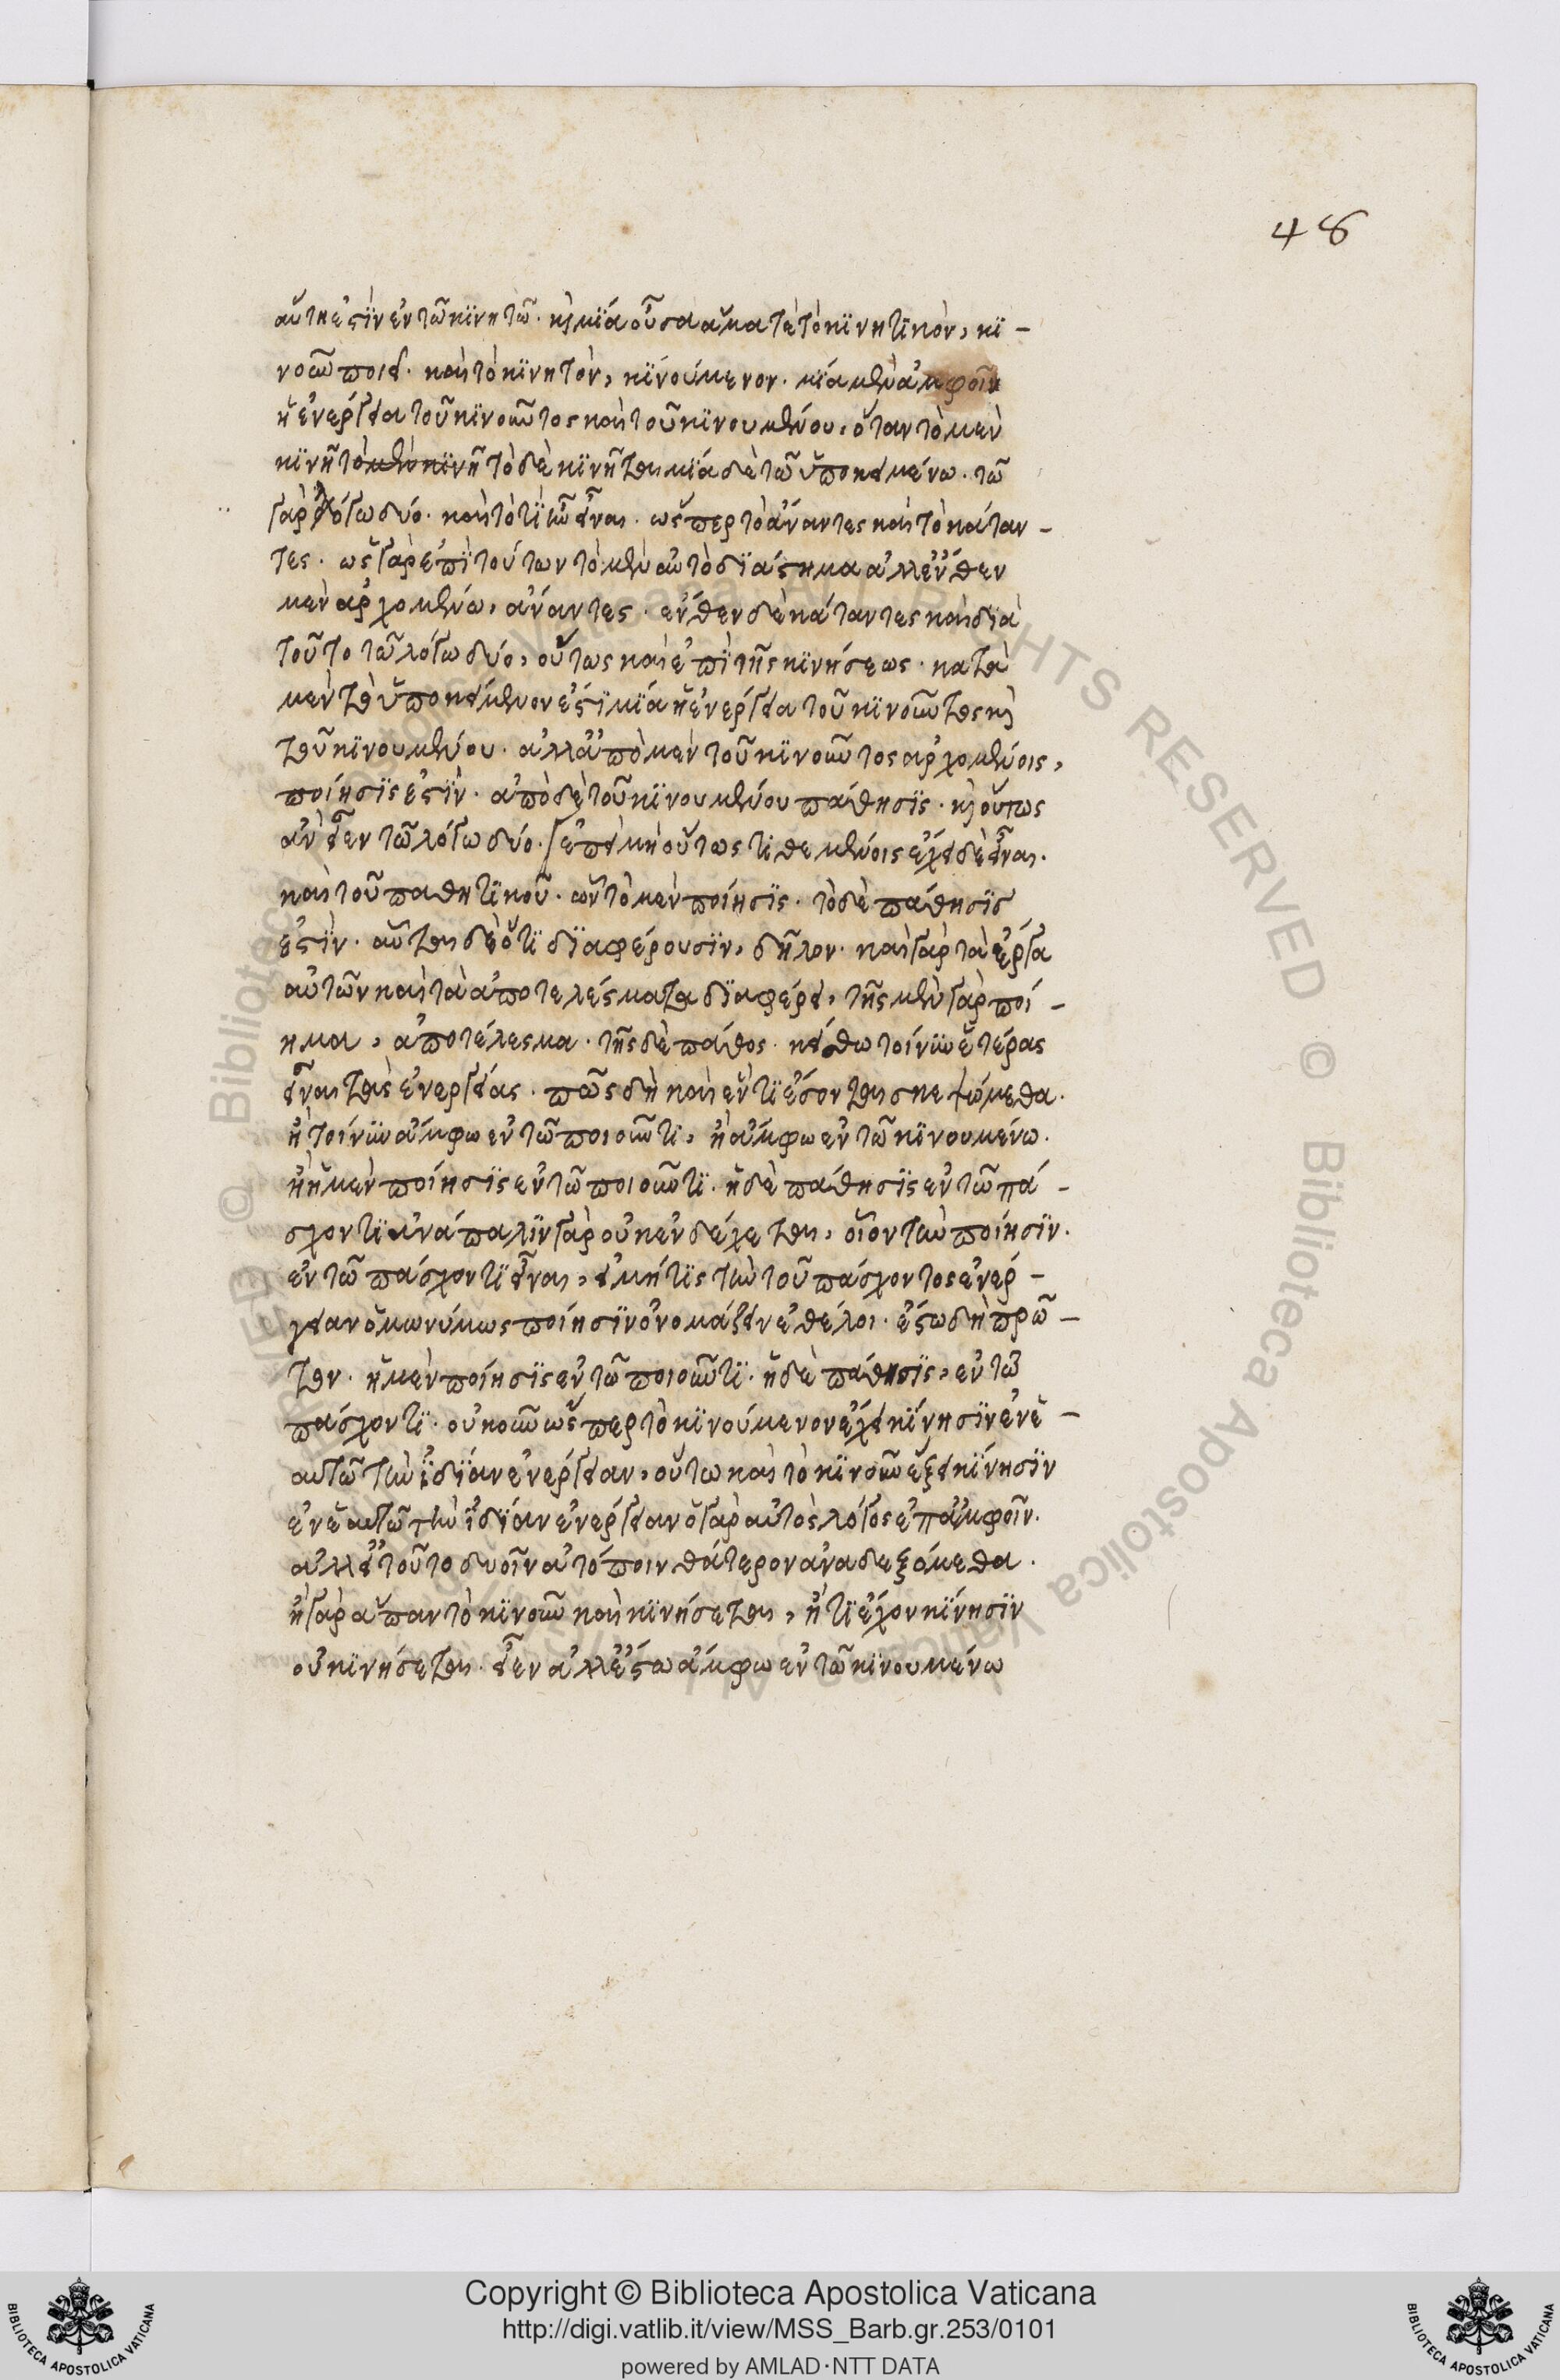 48
αὕτη ἐστὶν ἐν τῶ κινητῶ· καὶ μία οὖσα ἅμα τὲ τὸ κινητικὸν, κι-
νοῦν ποιεῖ· καὶ τὸ κινητὸν, κινούμενον. μία μὲν ἀμφοῖν
ἡ ἐνέργεια τοῦ κινοῦντος καὶ τοῦ κινουμένου, ὅταν τὸ μὲν
κινῆ τὸ μὲν κινῆ τὸ δὲ κινῆται μία δὲ τῶ ὑποκειμένω· τῶ
γὰρ λόγω δύο· καὶ τὸ τί ἦν εἶναι· ὥσπερ τὸ ἄναντες καὶ τὸ κάταν-
τες· ὡς γὰρ ἐπὶ τούτων τὸ μὲν αὐτὸ διάστημα ἀλλ' ἔνθεν
μὲν ἀρχομένω, ἄναντες· ἔνθεν δὲ κάταντες καὶ διὰ
τοῦτο τῶ λόγω δύο, οὕτως καὶ ἐπὶ τῆς κινήσεως· κατὰ
μὲν τὸ ὑποκείμενον ἐστὶ μία ἡ ἐνέργεια τοῦ κινοῦντος καὶ
τοῦ κινουμένου· ἀλλ' ἀπὸ μὲν τοῦ κινοῦντος ἀρχομένοις,
ποίησις ἐστὶν· ἀπὸ δὲ τοῦ κινουμένου πάθησις· καὶ οὕτως
ἂν εἶεν τῶ λόγω δύο· ἐπεὶ μὴ οὕτως τιθεμένοις ἔχει δὲ εἶναι.
καὶ τοῦ παθητικοῦ· ὧν τὸ μὲν ποίησις· τὸ δὲ πάθησις
ἐστὶν· αὗται δὲ ὅτι διαφέρουσιν, δῆλον· καὶ γὰρ τὰ ἔργα
αὐτῶν καὶ τὰ ἀποτελέσματα διαφέρει, τῆς μὲν γὰρ ποί-
ημα, ἀποτέλεσμα· τῆς δὲ πάθος· κείσθω τοίνυν ἑτέρας
εἶναι τὰς ἐνεργείας· πῶς δὴ καὶ ἐν τί ἔσονται σκεψώμεθα.
ἢ τοίνυν ἄμφω ἐν τῶ ποιοῦντι, ἢ ἄμφω ἐν τῶ κινουμένω.
ἢ ἡ μὲν ποίησις ἐν τῶ ποιοῦντι· ἡ δὲ πάθησις ἐν τῶ πά-
σχοντι ἀνάπαλιν γὰρ οὐκ ἐνδέχεται, οἷον τὴν ποίησιν.
ἐν τῶ πάσχοντι εἶναι, εἰ μή τις τὴν τοῦ πάσχοντος ἐνέρ-
γειαν ὁμωνύμως ποίησιν ὀνομάζειν ἐθέλοι. ἔστω δὴ πρῶ-
τον· ἡ μὲν ποίησις ἐν τῶ ποιοῦντι· ἡ δὲ πάθησις, ἐν τῶ
πάσχοντι· οὐκοῦν ὥσπερ τὸ κινούμενον ἔχει κίνησιν ἐν ἑ-
αυτῶ τὴν ἰδίαν ἐνέργειαν, οὕτω καὶ τὸ κινοῦν ἕξει κίνησιν
ἐν ἑαυτῶ τὴν ἰδίαν ἐνέργειαν ὁ γὰρ αὐτὸς λόγος ἐπ' ἀμφοῖν.
ἀλλ' εἰ τοῦτο δυοῖν ἀτόποιν θάτερον ἀναδεξόμεθα.
ἢ γὰρ ἅπαν τὸ κινοῦν καὶ κινήσεται, ἤ τι ἔχον κίνησιν
οὐ κινήσεται· εἶεν ἀλλ' ἔστω ἄμφω ἐν τῶ κινουμένω
Copyright © Biblioteca Apostolica Vaticana
http://digi.vatlib.it/view/MSS_Barb.gr.253/0101
powered by AMLAD·NTT DATA